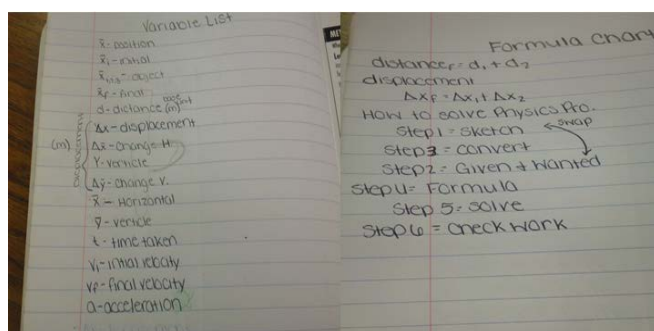 Variable List
x̄-position
x̄i-initial
x̄1,2,3-object
x̄f-final
d-distance (m)
(m)
Δx-displacement
Δx̄-change H.
Y-verticle
Δȳ-change V.
x̄-Horizontal
ȳ-verticle
t-time taken
vi-initial velocity
vf-final velocity
a-acceleration
Formula Chart
distancef = d1 + d2
displacement
Δxf = Δx1 + Δx2
How to solve Physics Pro.
Step 1 = sketch
swap
Step 3 = convert
Step 2 = Given + Wanted
Step 4 = Formula
Step 5 = solve
Step 6 = check work